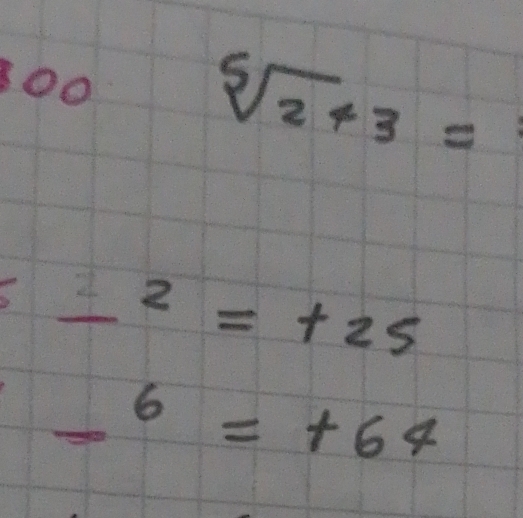 00 ⁵√2 + 3 =
_ ² = +25
_ ⁶ = +64